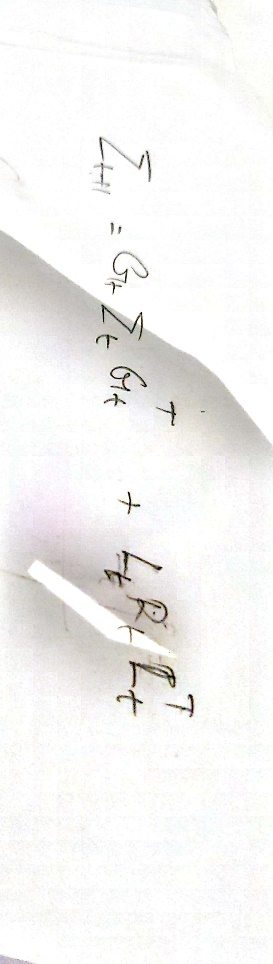 Σ_{t+1} = G_t Σ_t G_t^T + L_t R_t L_t^T